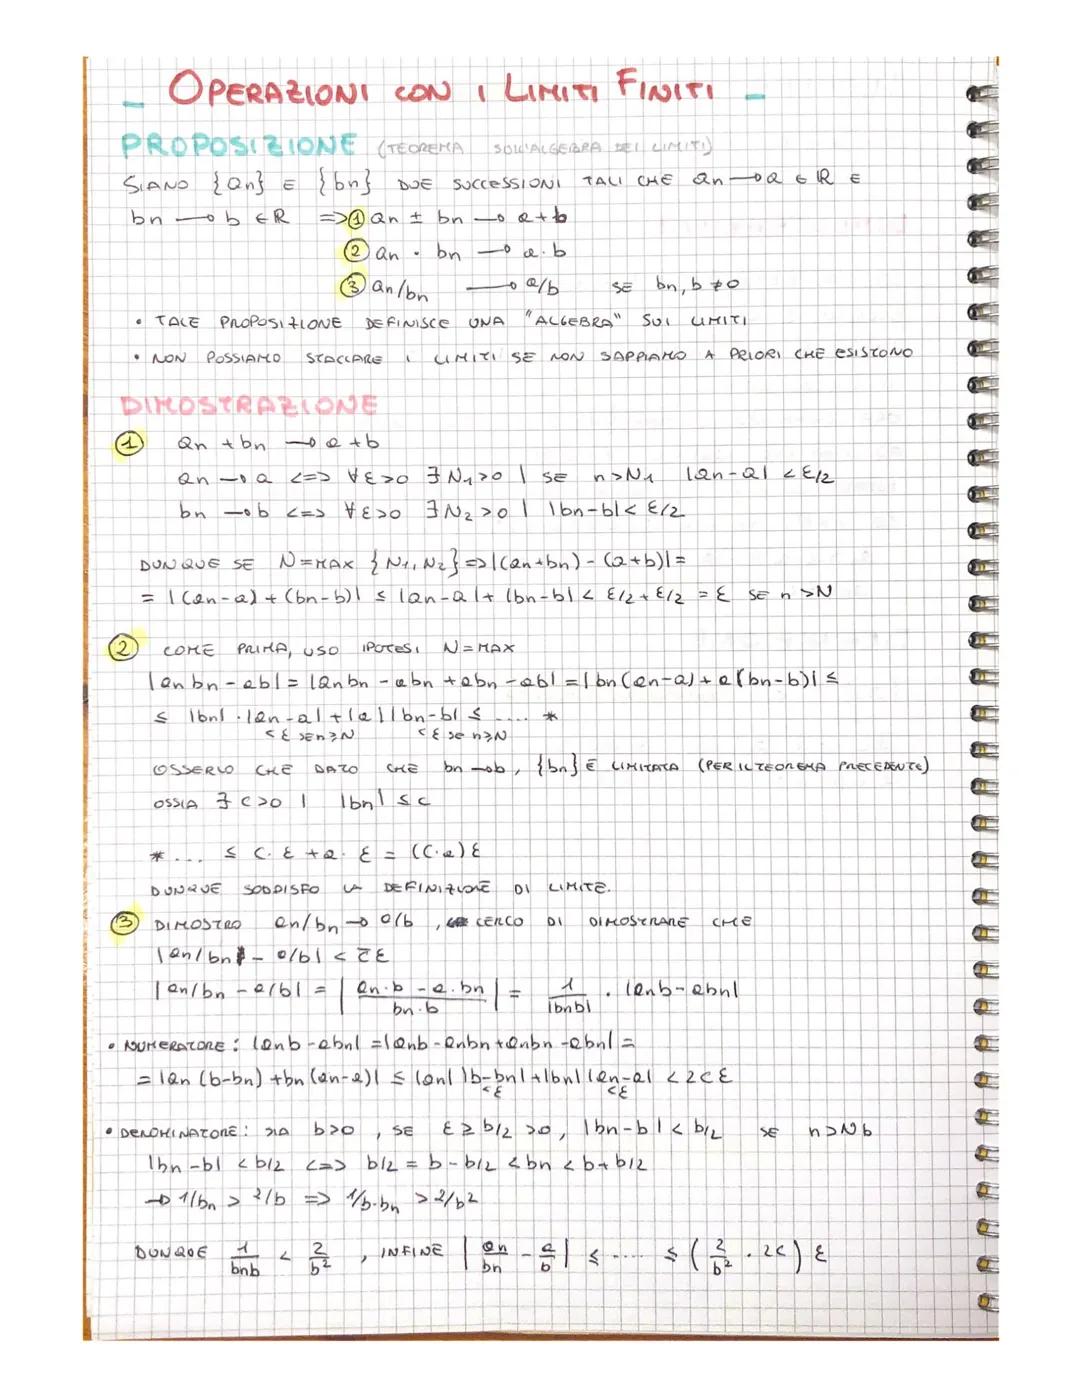 - OPERAZIONI CON I LIMITI FINITI -
PROPOSIZIONE (TEOREMA SULL'ALGEBRA DEI LIMITI)
SIANO {an} E {bn} DUE SUCCESSIONI TALI CHE an → a ∈ ℝ E
bn → b ∈ ℝ => ① an ± bn → a+b
② an · bn → a·b
③ an/bn → a/b SE bn, b ≠ 0
• TALE PROPOSIZIONE DEFINISCE UNA "ALGEBRA" SUI LIMITI
• NON POSSIAMO STACCARE I LIMITI SE NON SAPPIAMO A PRIORI CHE ESISTONO
DIMOSTRAZIONE
① an + bn → a + b
an → a <=> ∀ε>0 ∃N₁>0 | SE n>N₁ |an-a| < ε/2
bn → b <=> ∀ε>0 ∃N₂>0 | |bn-b| < ε/2
DUNQUE SE N=MAX {N₁, N₂} => |(an+bn) - (a+b)| =
= |(an-a) + (bn-b)| ≤ |an-a| + |bn-b| < ε/2 + ε/2 = ε SE n>N
② COME PRIMA, USO IPOTESI N=MAX
|anbn - ab| = |anbn - abn + abn - ab| = |bn(an-a) + a(bn-b)| ≤
≤ |bn| · |an-a| + |a||bn-b| ≤ .... *
<ε SE n≥N <ε se n≥N
OSSERVO CHE DATO CHE bn → b, {bn} È LIMITATA (PER IL TEOREMA PRECEDENTE)
OSSIA ∃ c>0 | |bn| ≤ c
* ... ≤ C. ε + a. ε = (C·a) ε
DUNQUE SODDISFO LA DEFINIZIONE DI LIMITE.
③ DIMOSTRO an/bn → a/b, CERCO DI DIMOSTRARE CHE
|an/bn - a/b| < c̅ε
|an/bn - a/b| = | an·b - a·bn / bn·b | = 1/|bnb| · |anb - abn|
• NUMERATORE: |anb - abn| = |anb - anbn + anbn - abn| =
= |an(b-bn) + bn(an-a)| ≤ |an| |b-bn| + |bn| |an-a| < 2cε
<ε <ε
• DENOMINATORE: SIA b>0, SE ε ≥ b/2 >0, |bn-b| < b/2 SE n>Nb
|bn-b| < b/2 <=> b/2 = b - b/2 < bn < b + b/2
→ 1/bn > 2/b => 1/b·bn > 2/b²
DUNQUE 1/bnb < 2/b², INFINE | an/bn - a/b | ≤ ..... ≤ ( 2/b² · 2c ) ε